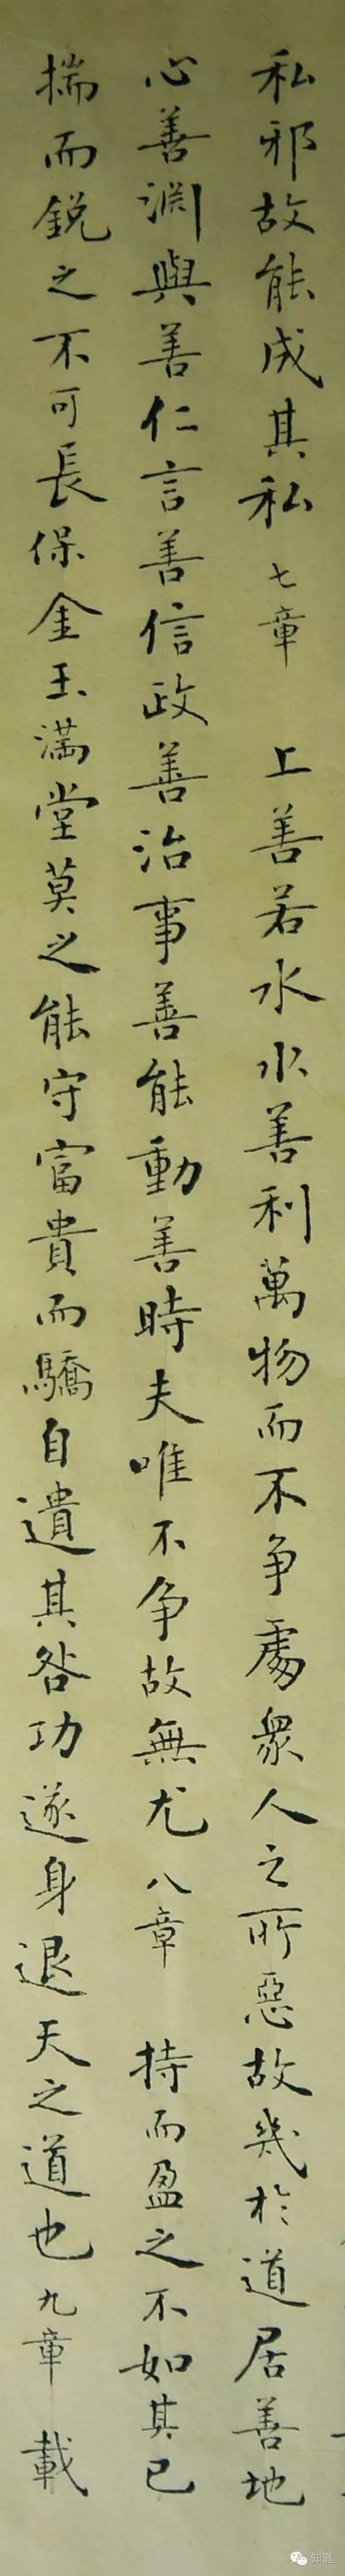 私邪故能成其私 七章 上善若水水善利萬物而不争處衆人之所惡故幾於道居善地
心善淵與善仁言善信政善治事善能動善時夫唯不争故無尤 八章 持而盈之不如其已
揣而銳之不可長保金玉滿堂莫之能守富貴而驕自遺其咎功遂身退天之道也 九章 載
知道